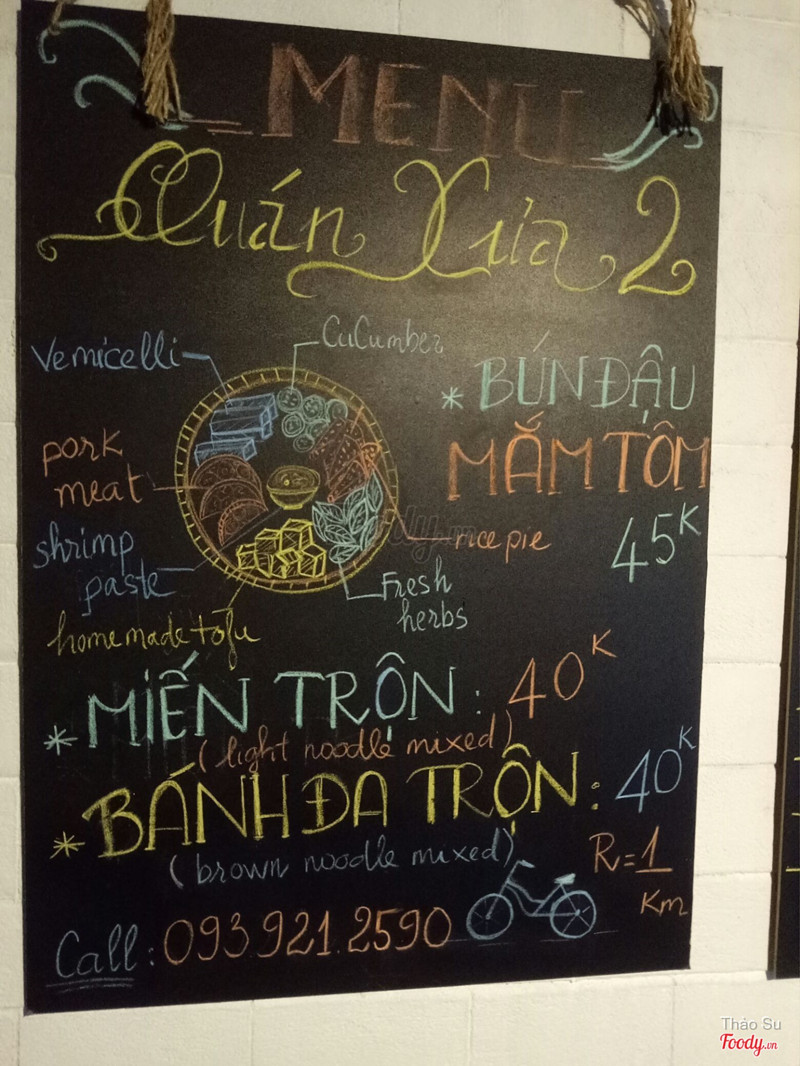 MENU
Quán Xưa 2
Vemicelli
CuCumber
* BÚN ĐẬU
MẮM TÔM
45K
pork
meat
shrimp
paste
rice pie
Fresh
herbs
homemade tofu
* MIẾN TRỘN : 40K
(light noodle mixed)
* BÁNH ĐA TRỘN : 40K
(brown noodle mixed)
R = 1
Km
Call : 093 921 2590
Thảo Su
Foody.vn